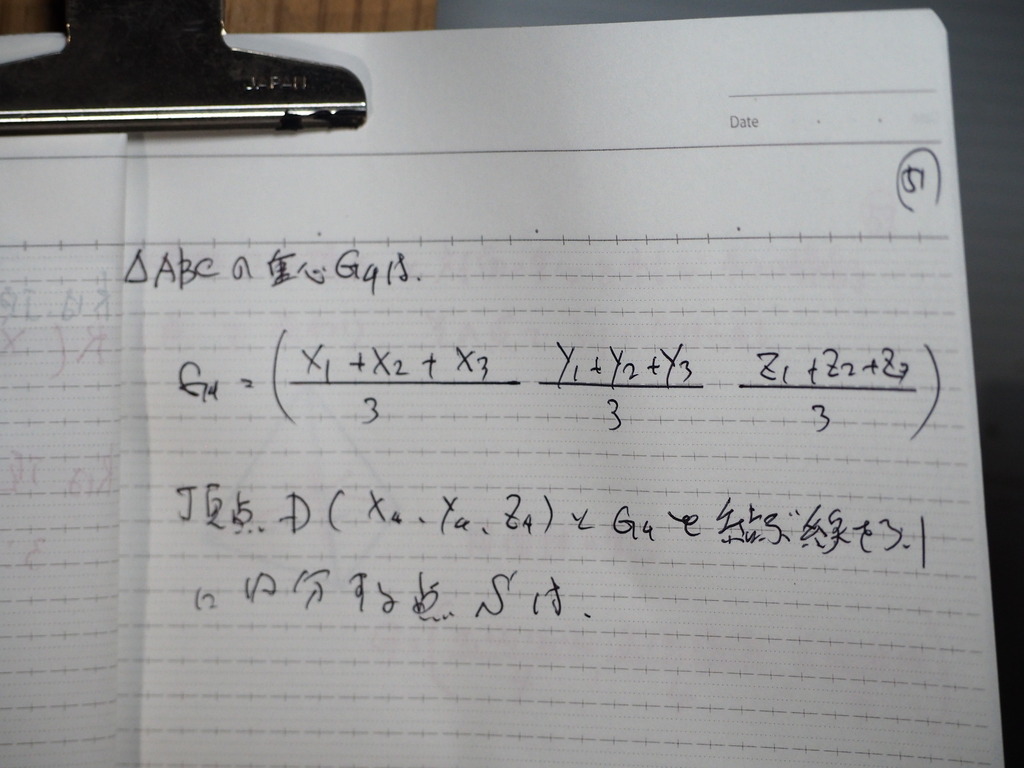 JAPAN
Date
51
△ABCの重心G4は.
G4 = ( X1+X2+X3 / 3  Y1+Y2+Y3 / 3  Z1+Z2+Z3 / 3 )
頂点 D ( X4、Y4、Z4 ) と G4を結ぶ線を3.1
に内分する点 S は.